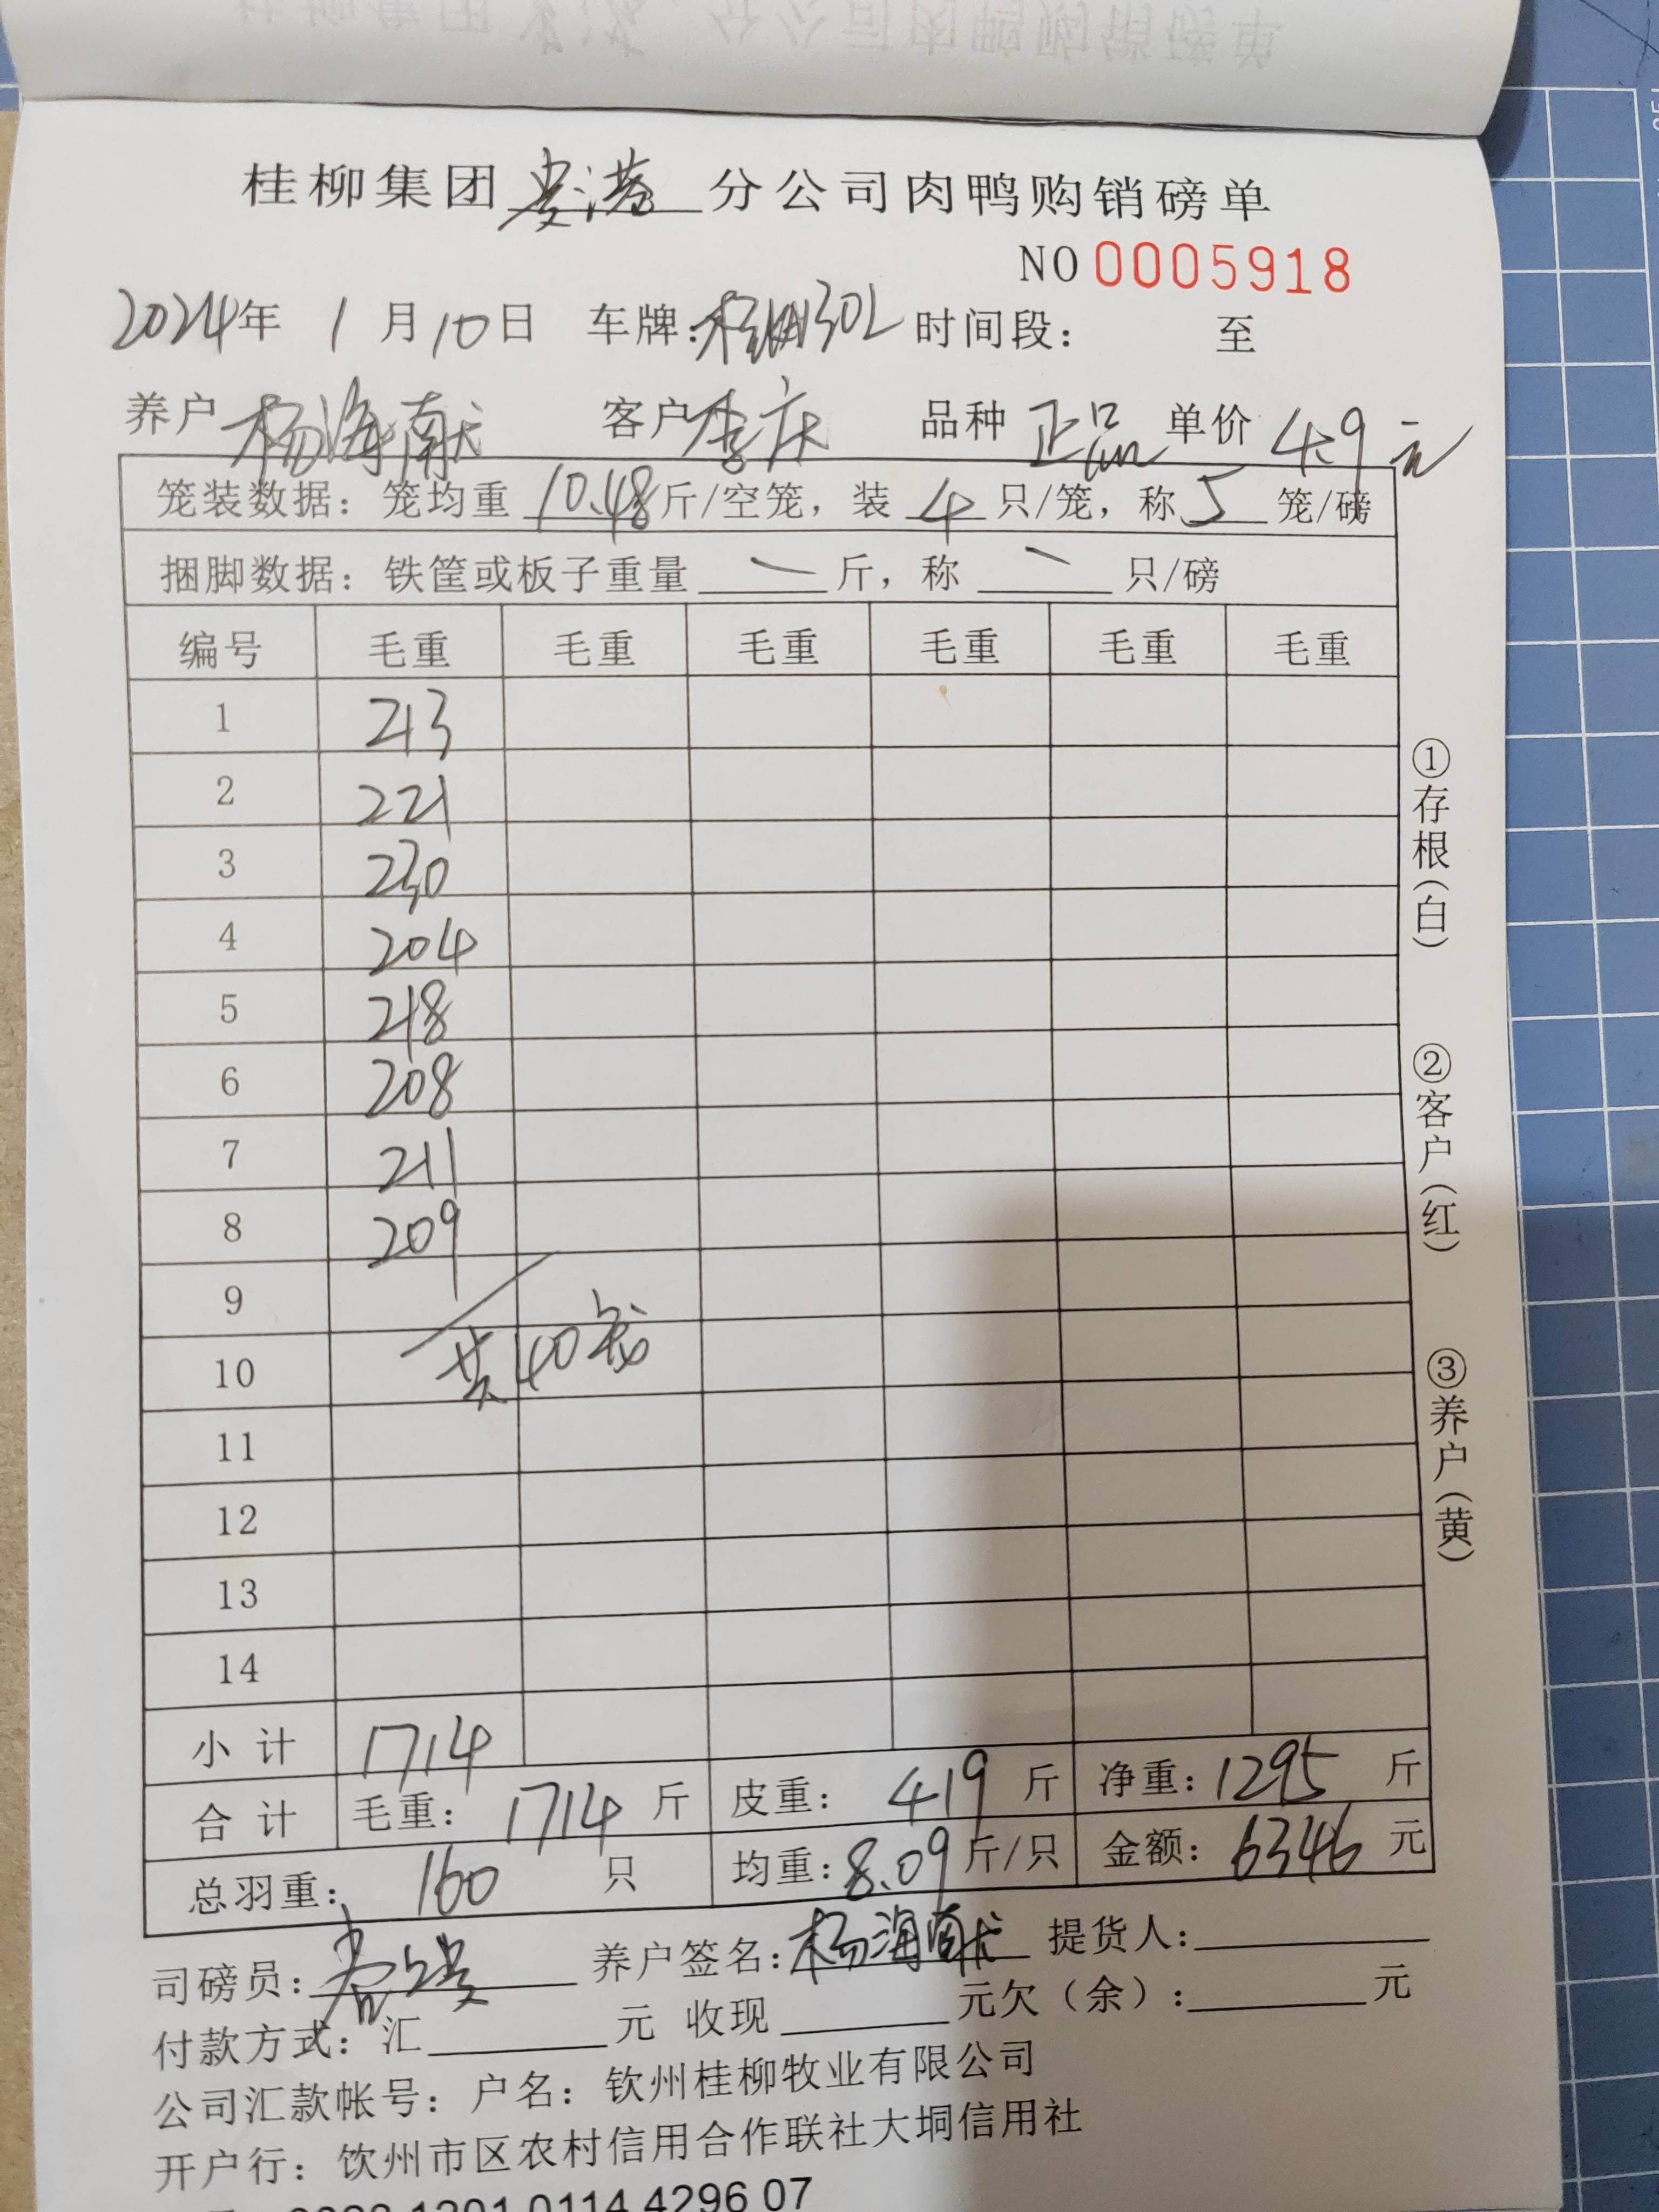 桂柳集团贵港分公司肉鸭购销磅单
NO 0005918
2024年 1月10日 车牌: 时间段: 至
养户 杨海南 客户 李庆 品种 正品 单价 4.9元
笼装数据: 笼均重 10.48斤/空笼, 装 4 只/笼, 称 5 笼/磅
捆脚数据: 铁筐或板子重量 — 斤, 称 — 只/磅
编号 毛重 毛重 毛重 毛重 毛重 毛重
1 213
2 221
3 230
4 204
5 218
6 208
7 211
8 209
9
10 共40笼
11
12
13
14
小计 1714
合计 毛重: 1714 斤 皮重: 419 斤 净重: 1295 斤
总羽重: 160 只 均重: 8.09 斤/只 金额: 6346 元
①存根(白)
②客户(红)
③养户(黄)
司磅员: 养户签名: 杨海 提货人:
付款方式: 汇 元 收现 元欠(余): 元
公司汇款帐号: 户名: 钦州桂柳牧业有限公司
开户行: 钦州市区农村信用合作联社大垌信用社
0114 4296 07